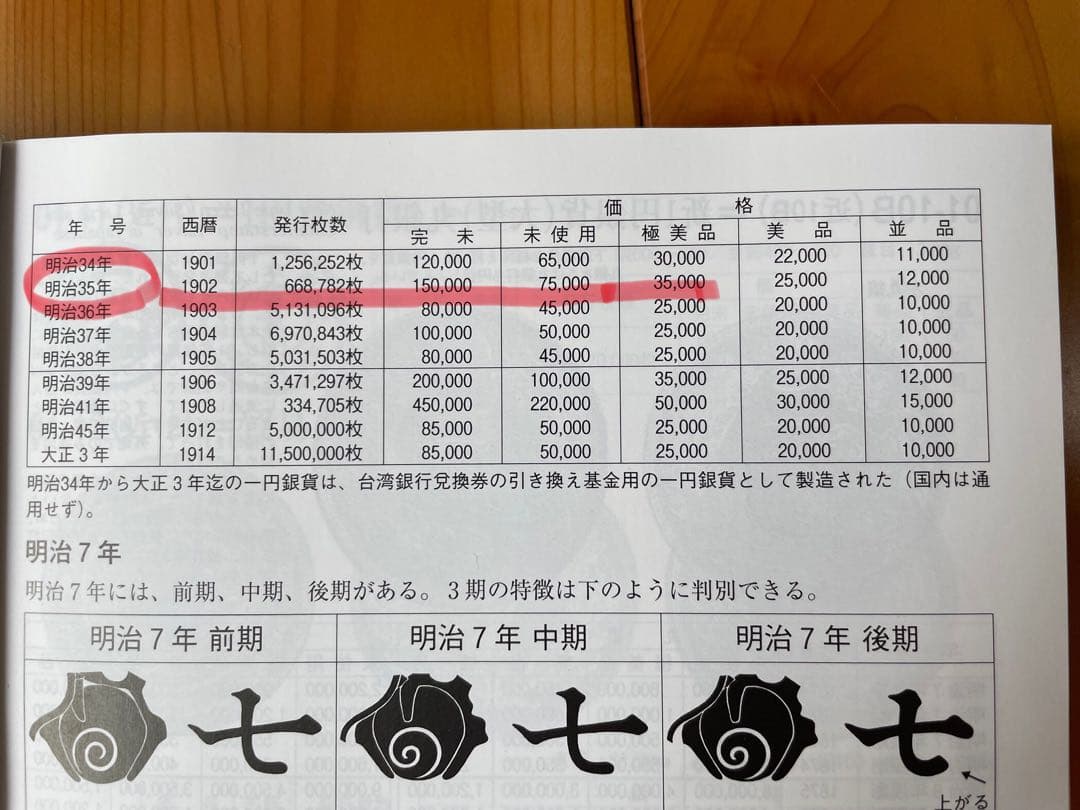 年　号 西暦 発行枚数 価　格
完　未 未使用 極美品 美　品 並　品
明治34年 1901 1,256,252枚 120,000 65,000 30,000 22,000 11,000
明治35年 1902 668,782枚 150,000 75,000 35,000 25,000 12,000
明治36年 1903 5,131,096枚 80,000 45,000 25,000 20,000 10,000
明治37年 1904 6,970,843枚 100,000 50,000 25,000 20,000 10,000
明治38年 1905 5,031,503枚 80,000 45,000 25,000 20,000 10,000
明治39年 1906 3,471,297枚 200,000 100,000 35,000 25,000 12,000
明治41年 1908 334,705枚 450,000 220,000 50,000 30,000 15,000
明治45年 1912 5,000,000枚 85,000 50,000 25,000 20,000 10,000
大正3年 1914 11,500,000枚 85,000 50,000 25,000 20,000 10,000
明治34年から大正3年迄の一円銀貨は、台湾銀行兌換券の引き換え基金用の一円銀貨として製造された（国内は通
用せず）。
明治7年
明治7年には、前期、中期、後期がある。3期の特徴は下のように判別できる。
明治7年 前期 明治7年 中期 明治7年 後期
七 七 七
上がる